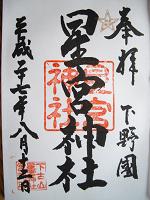 奉拝
下野國
星宮神社
星宮神社
平成二十七年八月十三日